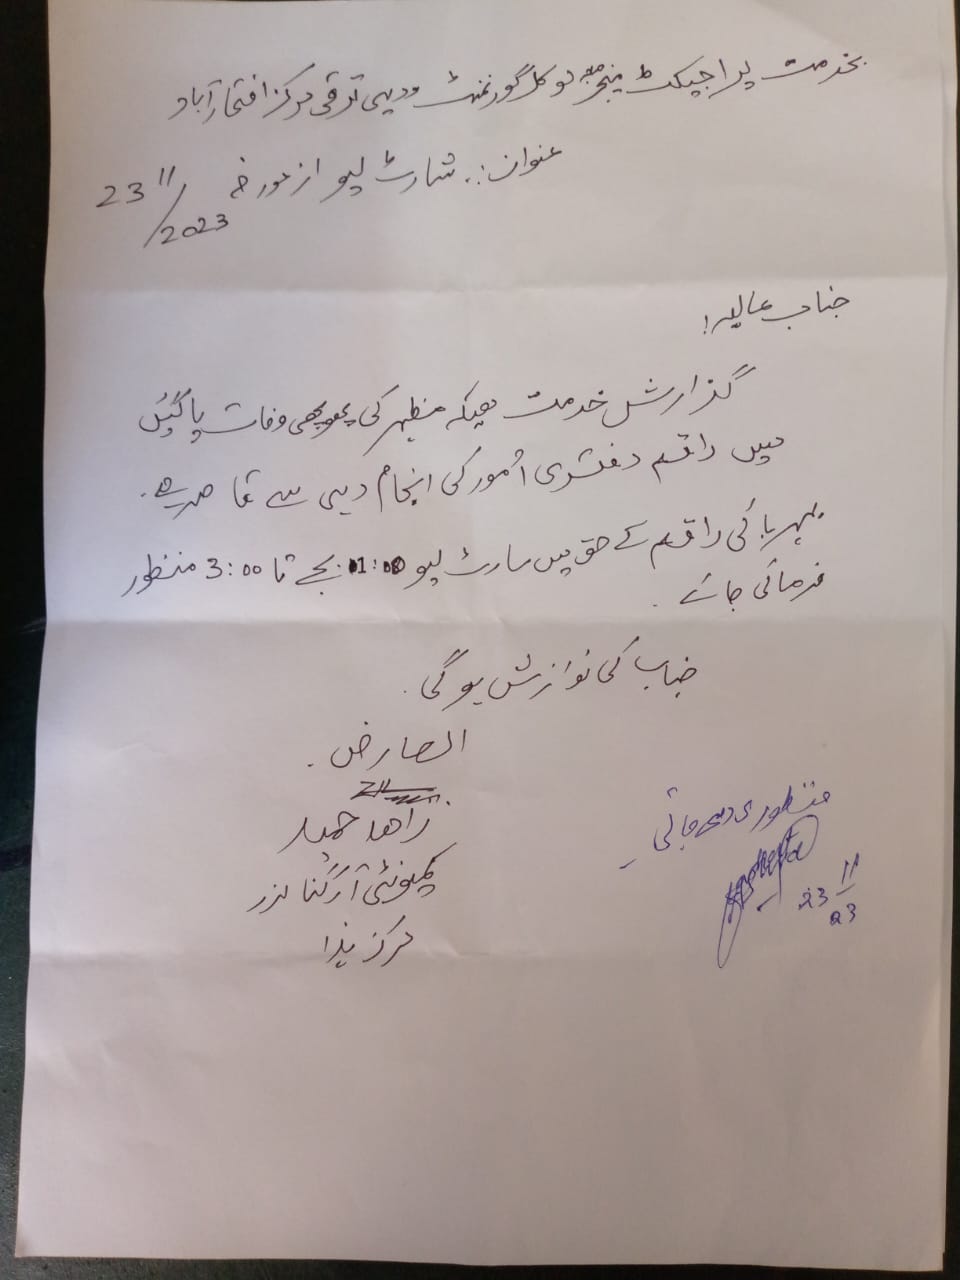 بخدمت پراجیکٹ منیجر صاحبہ لوکل گورنمنٹ و دیہی ترقی مرکز افتخار آباد
عنوان:. شارٹ لیو از مورخہ 23/11/2023
جناب عالیہ!
گذارش خدمت ہیکہ مظہر کی پھوپھی وفات پا گئیں
ہیں راقم دفتری اُمور کی انجام دہی سے قاصر ہے.
مہربا کی راقم کے حق میں سارٹ لیو 01:00 بجے تا 3:00 منظور
فرمائی جائے.
جناب کی نوازش ہو گی.
العارض.
زاهد حمید
کمیونٹی آرگنائزر
مرکز ہذا
منظوری دی جاتی
23 11/23